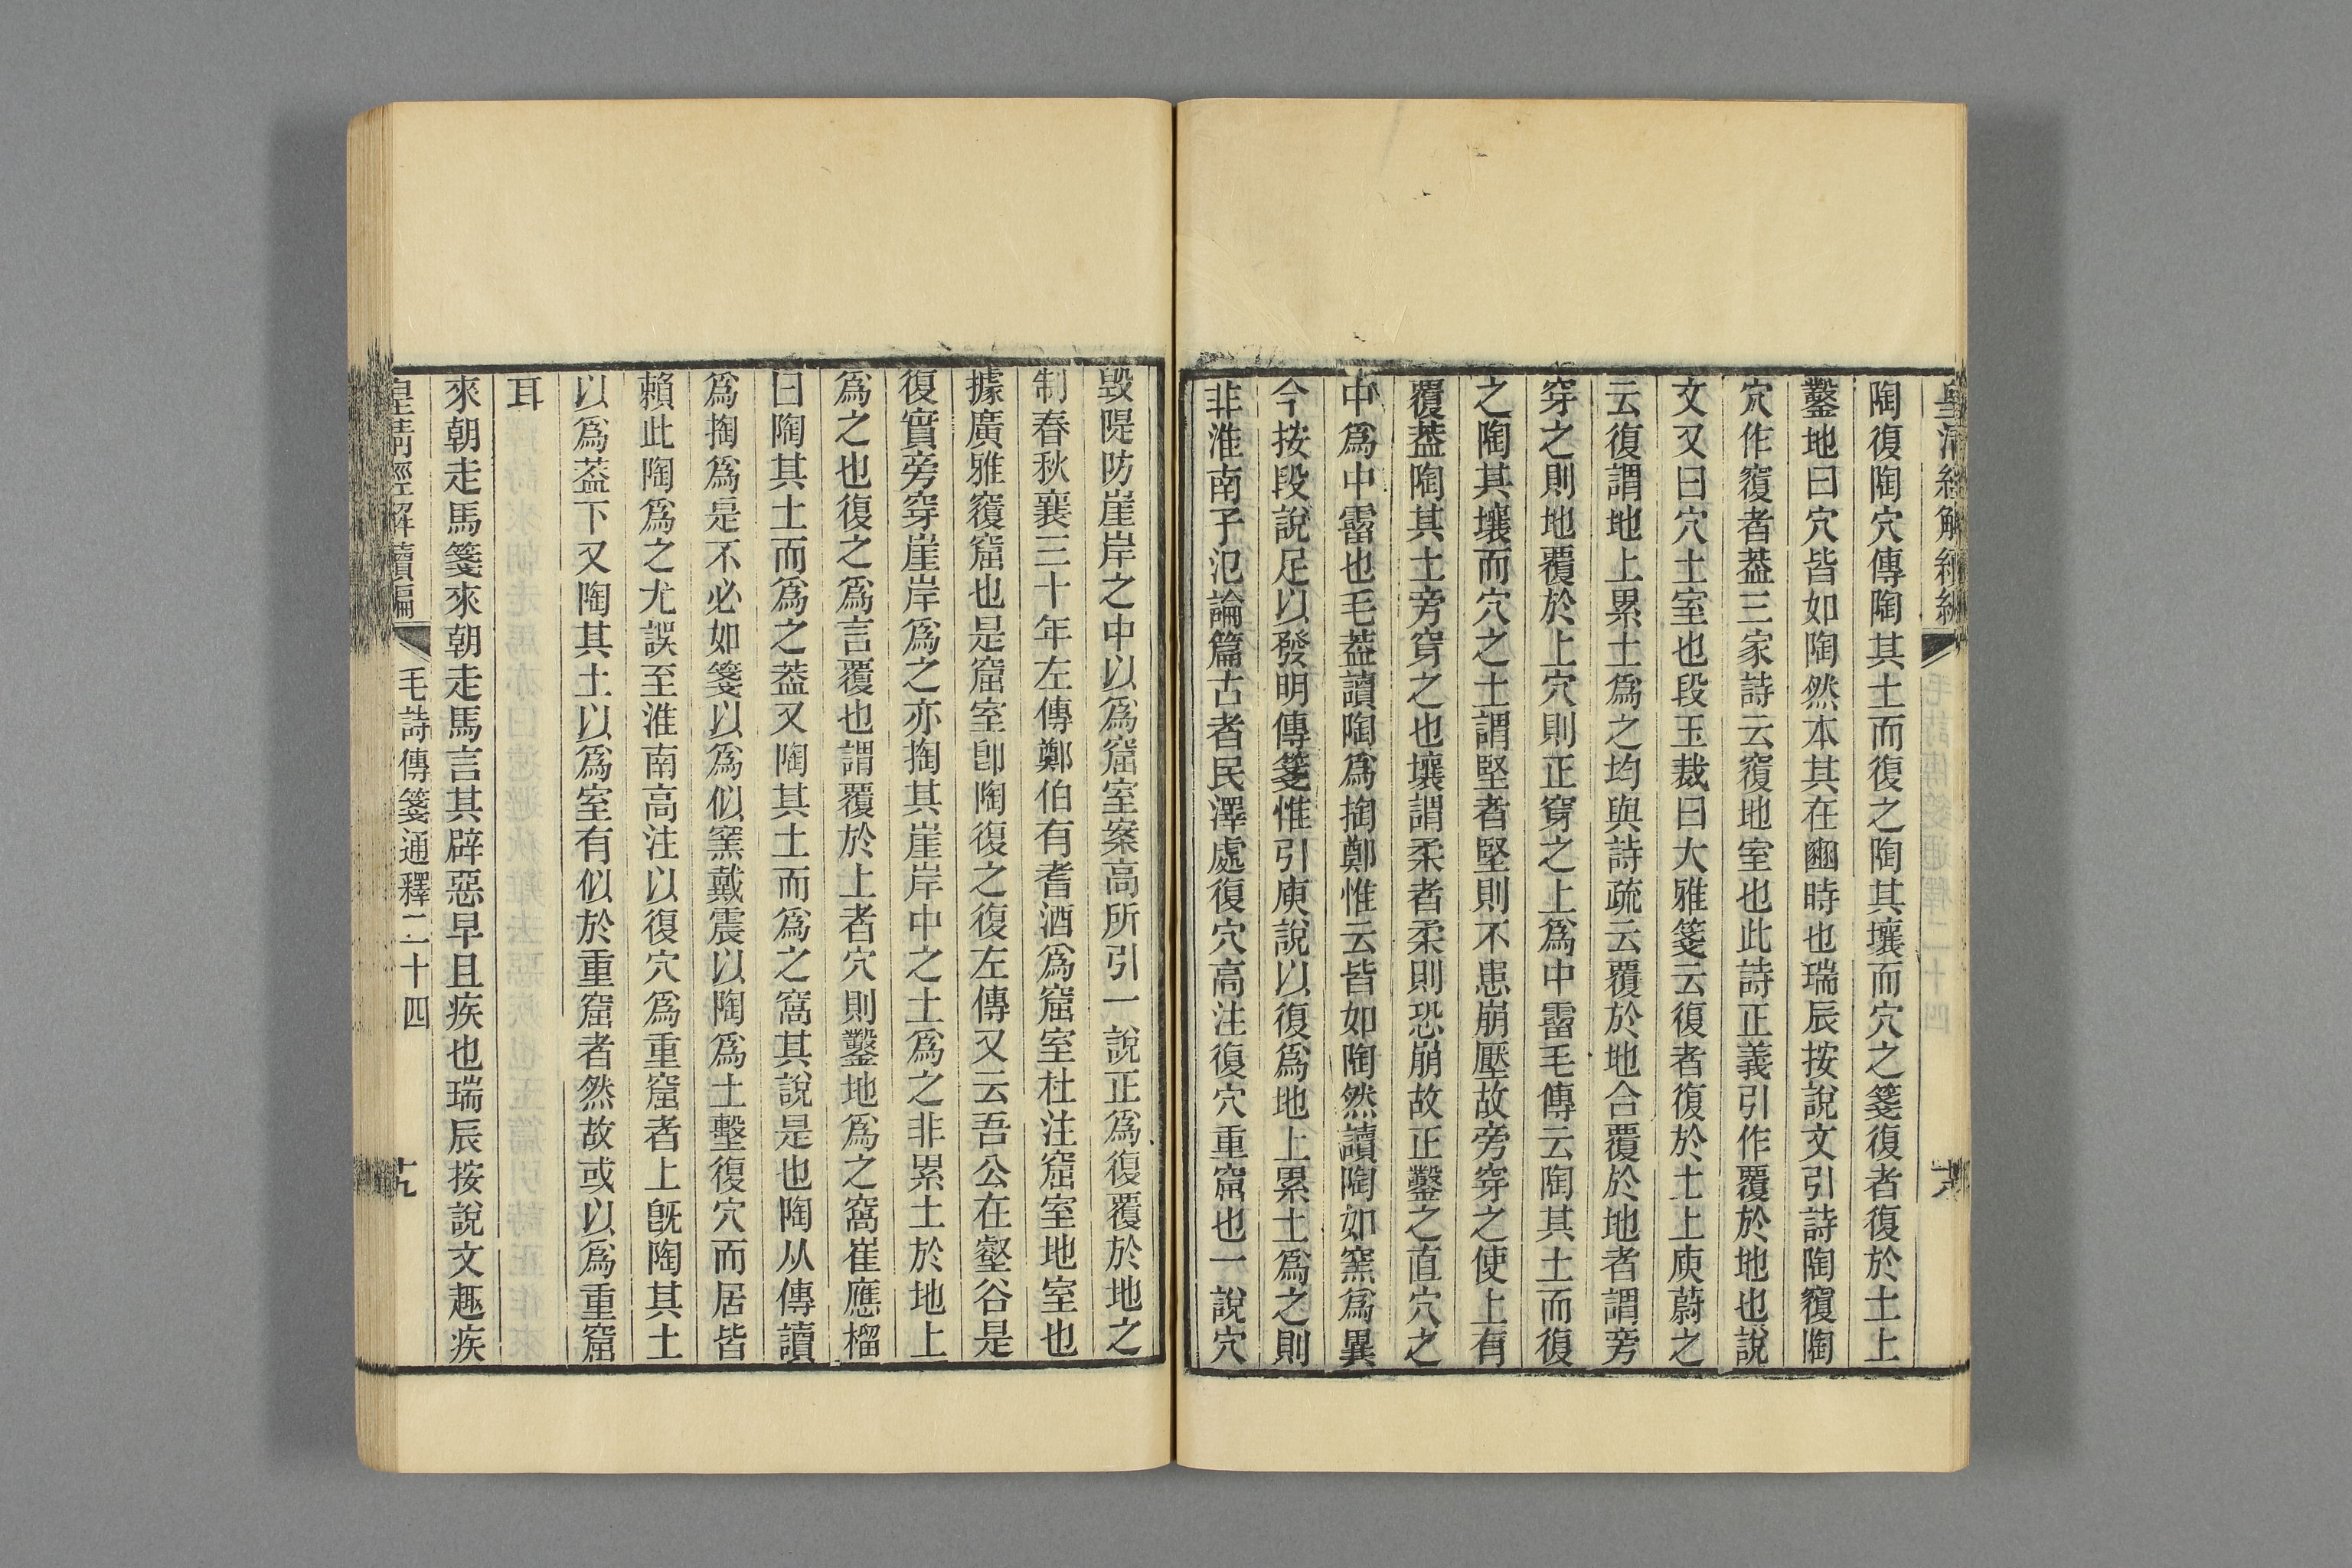 皇清經解續編
陶復陶穴傳陶其土而復之陶其壤而穴之箋復者復於土上
鑿地曰穴皆如陶然本其在豳時也瑞辰按說文引詩陶㝮陶
穴作㝮者葢三家詩云㝮地室也此詩正義引作覆於地也說
文又曰穴土室也段玉裁曰大雅箋云復者復於土上庾蔚之
云復謂地上累土爲之均與詩疏云覆於地合覆於地者謂旁
穿之則地覆於上穴則正穿之上爲中霤毛傳云陶其土而復
之陶其壤而穴之土謂堅者堅則不患崩壓故旁穿之使上有
覆葢陶其土旁穿之也壤謂柔者柔則恐崩故正鑿之直穴之
中爲中霤也毛葢讀陶爲掏鄭惟云皆如陶然讀陶如窯爲異
今按段說足以發明傳箋惟引庾說以復爲地上累土爲之則
非淮南子氾論篇古者民澤處復穴高注復穴重窟也一說穴
毀隄防崖岸之中以爲窟室案高所引一說正爲復覆於地之
制春秋襄三十年左傳鄭伯有耆酒爲窟室杜注窟室地室也
據廣雅㝮窟也是窟室卽陶復之復左傳又云吾公在壑谷是
復實旁穿崖岸爲之亦掏其崖岸中之土爲之非累土於地上
爲之也復之爲言覆也謂覆於上者穴則鑿地爲之窩崔應榴
曰陶其土而爲之葢又陶其土而爲之窩其說是也陶从傳讀
爲掏爲是不必如箋以爲似窯戴震以陶爲土墼復穴而居皆
賴此陶爲之尤誤至淮南高注以復穴爲重窟者上旣陶其土
以爲葢下又陶其土以爲室有似於重窟者然故或以爲重窟
耳
來朝走馬箋來朝走馬言其辟惡早且疾也瑞辰按說文趣疾
皇清經解續編 毛詩傳箋通釋二十四 十九